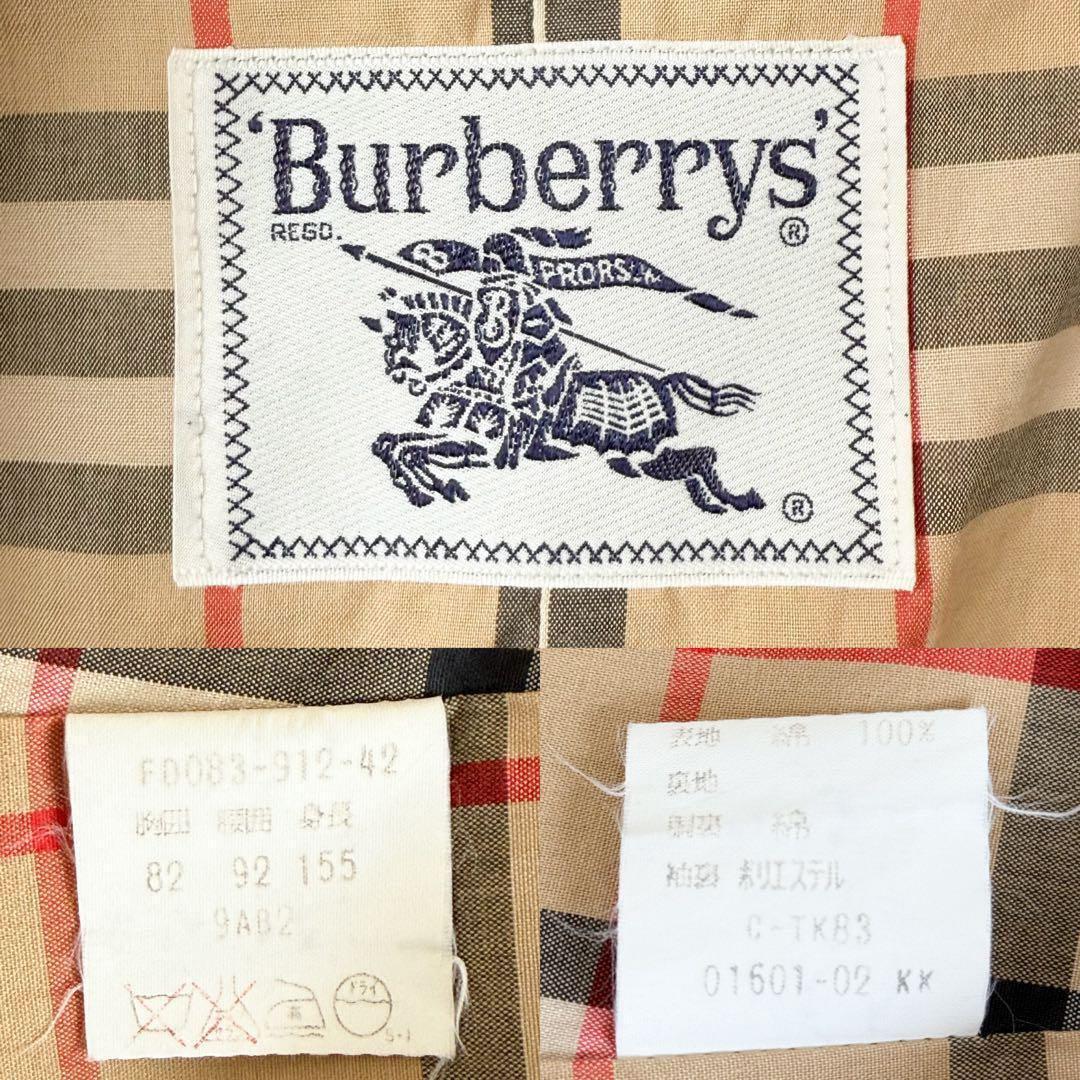 'Burberrys'
REGD. ®
B PRORSUM
B
®
FD083-912-42
胸囲 腰囲 身長
82 92 155
9AB2
ドライ
S-1
表地 綿 100%
裏地
胴裏 綿
袖裏 ポリエステル
C-TK83
01601-02 K*